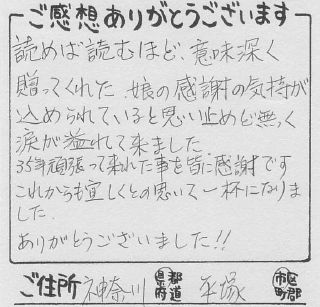 ご感想ありがとうございます
読めば読むほど、意味深く
贈ってくれた、娘の感謝の気持が
込められていると思い止めど無く
涙が溢れて来ました
35年頑張って来れた事を皆に感謝です
これからも宜しくとの思いで一杯になりま
した。
ありがとうございました!!
ご住所 神奈川 都道府県 平塚 市区町郡